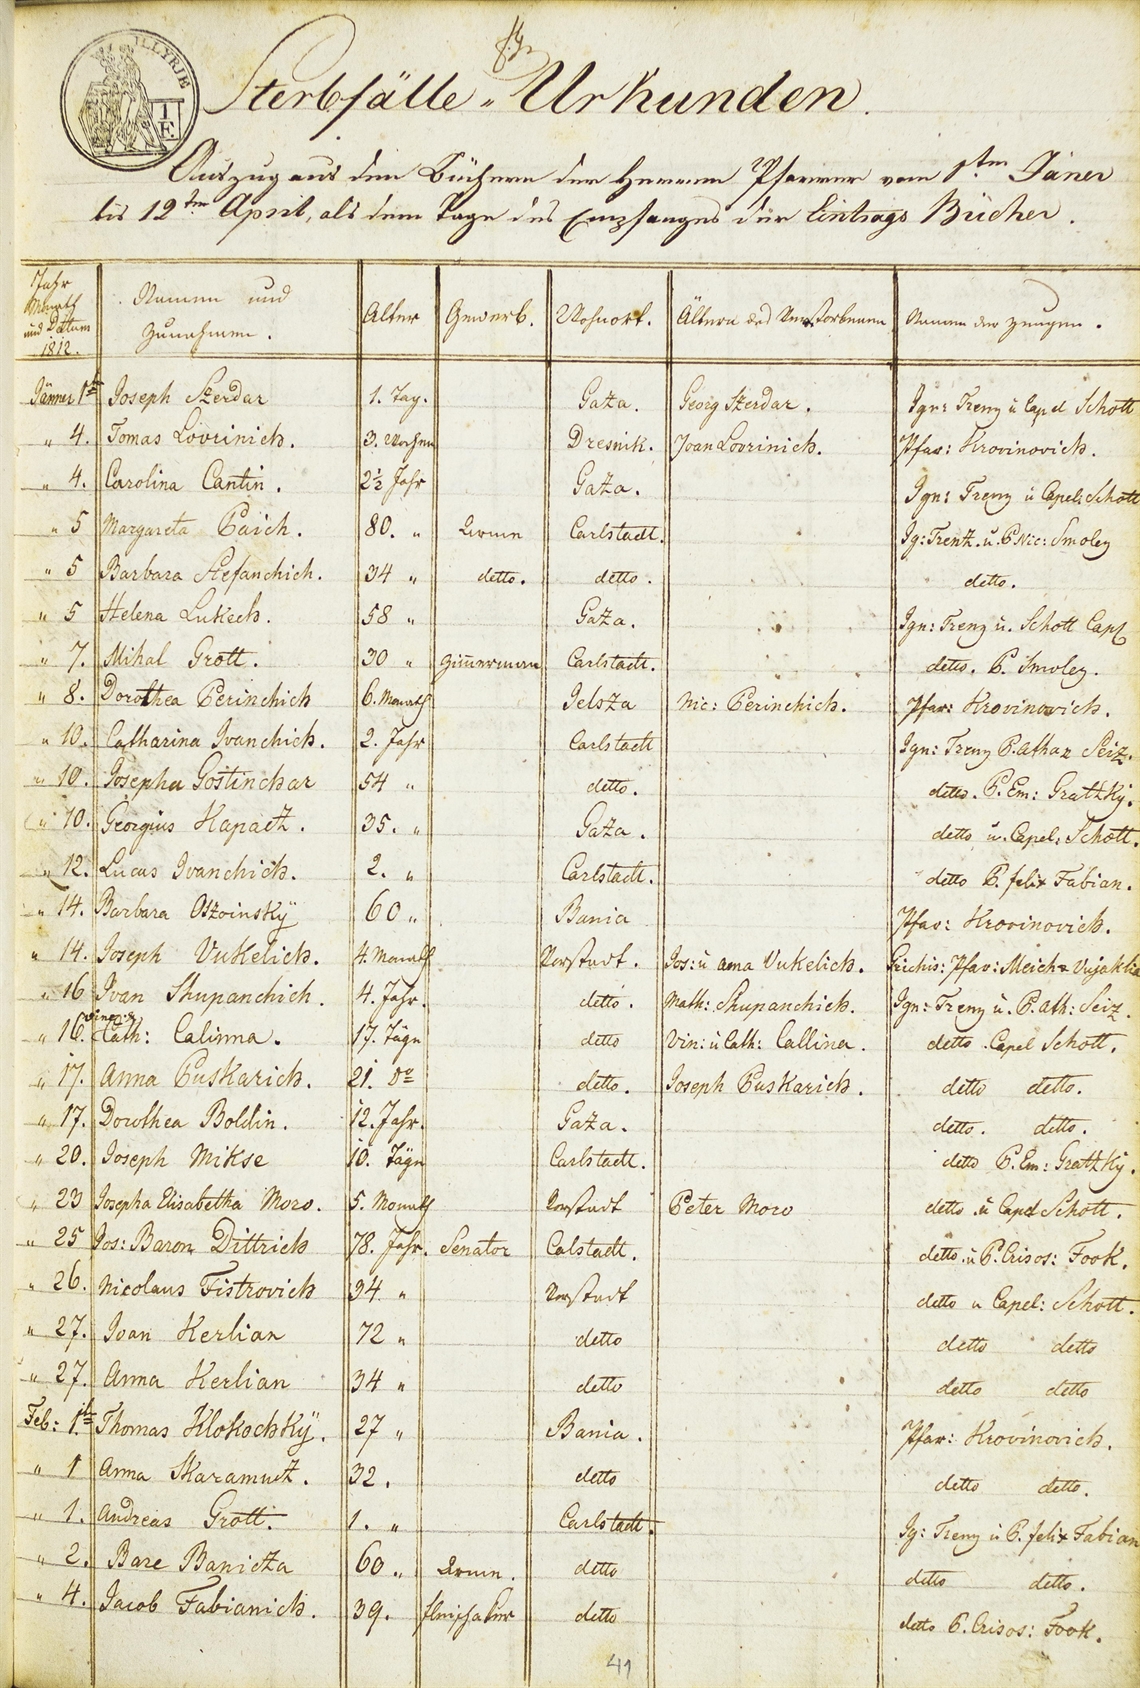 ILLYRIE
Sterbfälle-Urkunden.
Auszug aus den Büchern der Herren Pfarrer vom 1ten Jäner
bis 12ten April, als dem Tage des Empfanges der Eintrags Bücher.
Jahr Monath und Datum 1812. Namen und Zunahmen. Alter Gewerb. Wohnort. Ältern des Verstorbenen Namen der Zeugen.
Jänner 1t Joseph Szerdar 1. Tag. Gaza. Georg Szerdar. Ign: Treny ù Capel Schott
" 4. Tomas Lovrinich. 3. Wochen Dresnik. Joan Lovrinich. Pfar: Krovinovich.
" 4. Carolina Cantin. 2½ Jahr Gaza. Ign: Treny ù Capel: Schott
" 5 Margareta Paich. 80. " Arme Carlstadt. Ig: Trentz. u. P. Nic: Smoley
" 5 Barbara Stefanchich. 34 " detto. detto. detto.
" 5 Helena Lukech. 58 " Gaza. Ign: Treny ù. Schott Capl
" 7. Mihal Grott. 30 " Zimmerman Carlstadt. detto. P. Smoley.
" 8. Dorothea Perinchich 6. Monath Jelsza Nic: Perinchich. Pfar: Krovinovich.
" 10. Catharina Ivanchich. 2. Jahr Carlstadt Ign: Treny P. Athaz Seiz.
" 10. Josepha Gostinchar 54 " detto. detto. P. Em: Gratzky.
" 10. Georgius Hapatz. 35. " Gaza. detto ù. Capel: Schott.
" 12. Lucas Ivanchich. 2. " Carlstadt. detto P. felix Fabian.
" 14. Barbara Oszoinsky 60 " Bania Pfar: Krovinovich.
" 14. Joseph Vukelich. 4. Monath Vorstadt. Jos: ù Ana Vukelich. Grichis: Pfar: Meich Vujaklia
" 16 Ivan Shupanchich. 4. Jahr. detto. Math: Shupanchich. Ign: Treny ù. P. Ath: Seiz.
" 16. Cath: Calinna. 17. Täge detto Vin: ù Cath: Callina. detto. Capel Schott.
" 17. Anna Puskarich. 21. do detto. Joseph Puskarich. detto detto.
" 17. Dorothea Boldin. 12. Jahr. Gaza. detto. detto.
" 20. Joseph Mikse 10. Täge Carlstadt. detto P. Em: Gratzky.
" 23 Josepha Elisabetha Moro. 5. Monath Vorstadt Peter Moro detto. ù Capel Schott.
" 25 Jos: Baron Dittrich 78. Jahr. Senator Calstadt. detto. ù P. Crisos: Fook.
" 26. Nicolaus Fistrovich 34 " Vorstadt detto u Capel: Schott.
" 27. Joan Kerlian 72 " detto detto detto
" 27. Anna Kerlian 34 " detto detto detto
Feb: 1t Thomas Klokochky. 27 " Bania. Pfar: Krovinovich.
" 1 Anna Skaramutz. 32. detto detto detto.
" 1. Andreas Grott. 1. " Carlstadt. Ig: Treny ù P. felix Fabian
" 2. Bare Banicza 60 " Arme. detto detto detto.
" 4. Jacob Fabianich. 39. fleischaker detto detto P. Crisos: Fook.
41